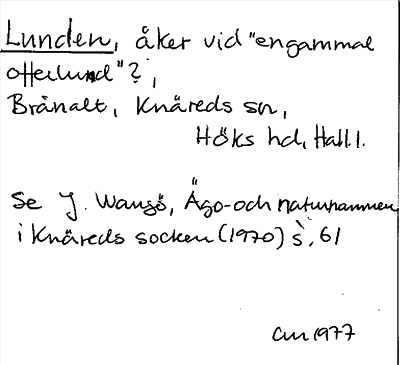 Lunden, åker vid "en gammal
offerlund"?,
Brånalt, Knäreds sn,
Höks hd, Hall.
Se J. Wangö, Ägo- och naturnamnen
i Knäreds socken (1970) s. 61
1977